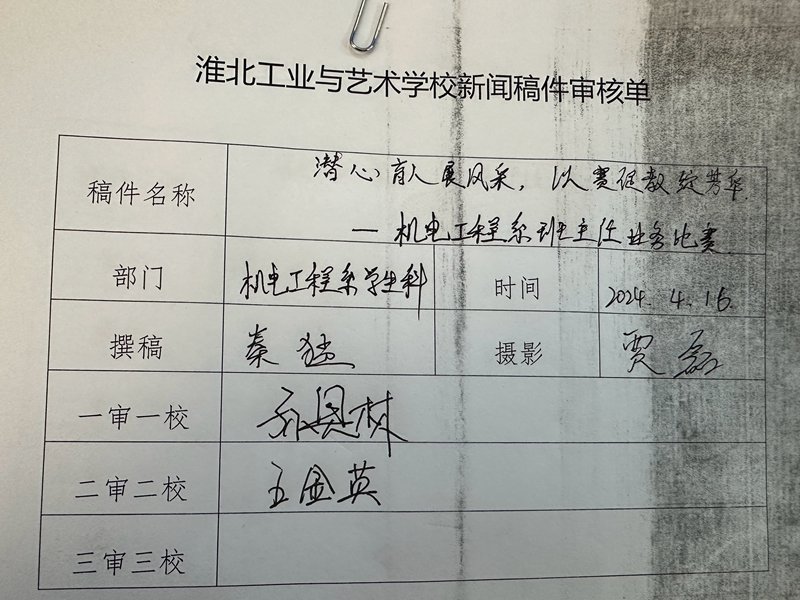 淮北工业与艺术学校新闻稿件审核单
稿件名称 潜心育人展风采，以赛促教绽芳华
—机电工程系班主任业务比赛
部门 机电工程系学生科 时间 2024.4.16.
撰稿 秦 摄影 贾磊
一审一校
二审二校 王金英
三审三校